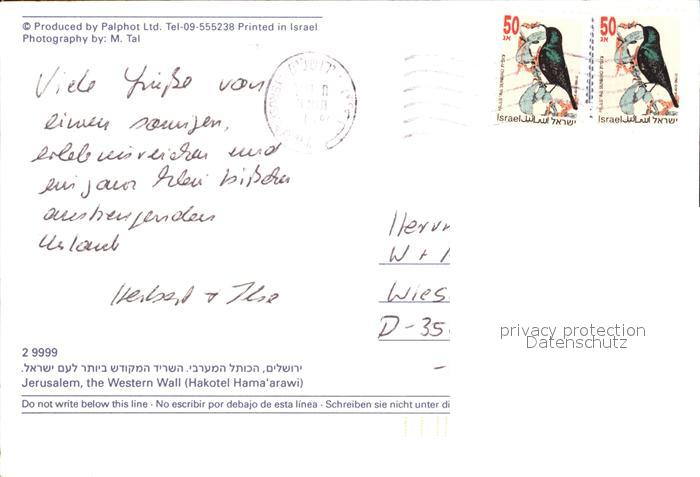 © Produced by Palphot Ltd. Tel-09-555238 Printed in Israel
Photography by: M. Tal
50
אג
Israel اسرائيل ישראל
50
אג
Israel اسرائيل ישראל
Viele Grüße von
einem sonnigen,
erlebnisreichen und
ein ganz klein bißchen
anstrengenden
Urlaub
Herbert + Ilse
Herrn
W +
Wies
D-35
privacy protection
Datenschutz
2 9999
ירושלים, הכותל המערבי. השריד המקודש ביותר לעם ישראל.
Jerusalem, the Western Wall (Hakotel Hama'arawi)
Do not write below this line · No escribir por debajo de esta línea · Schreiben sie nicht unter di